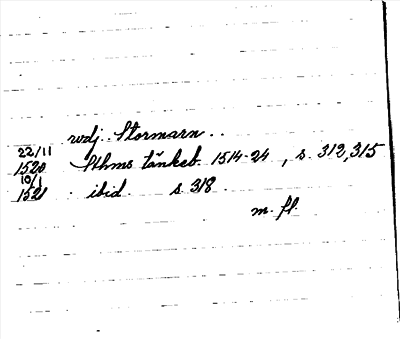 rvdj. Stormarn..
22/11
1520 Sthms tänkeb. 1514-24, s. 312, 315
10/1
1521 ibid. s. 318.
m. fl.